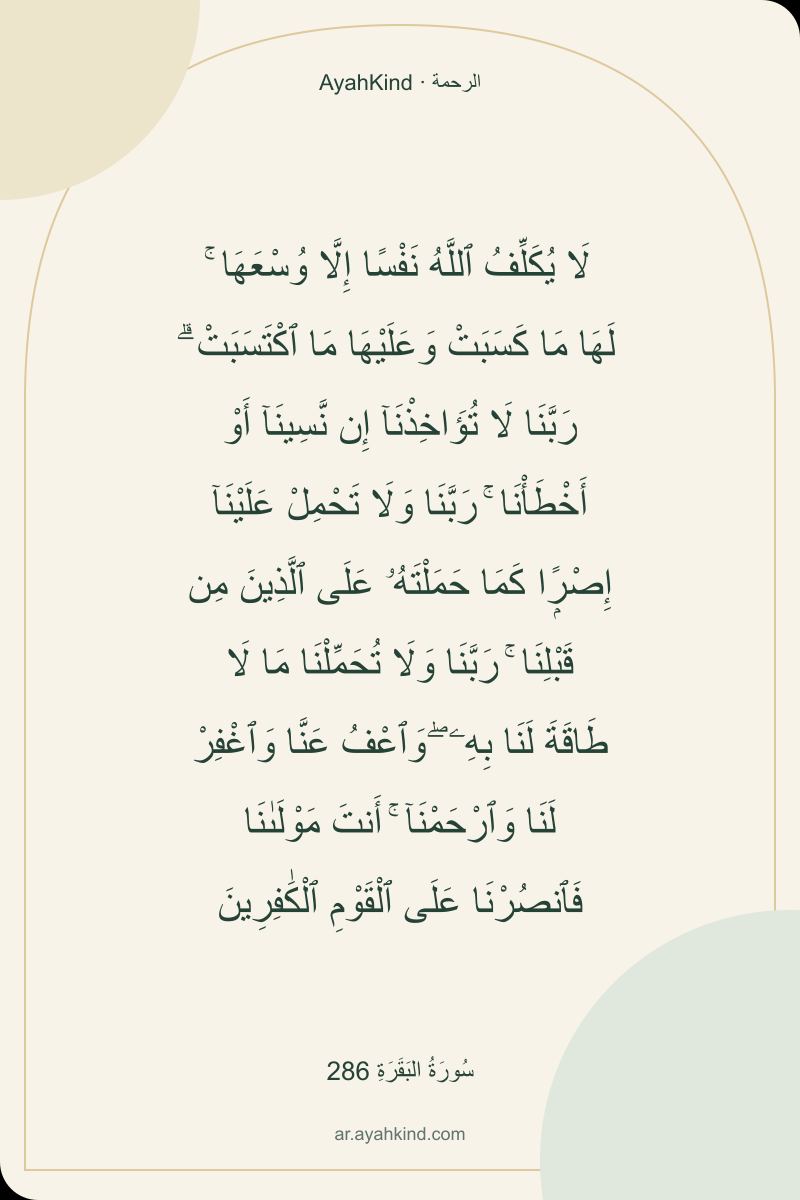 AyahKind · الرحمة
لَا يُكَلِّفُ ٱللَّهُ نَفْسًا إِلَّا وُسْعَهَا ۚ
لَهَا مَا كَسَبَتْ وَعَلَيْهَا مَا ٱكْتَسَبَتْ ۗ
رَبَّنَا لَا تُؤَاخِذْنَآ إِن نَّسِينَآ أَوْ
أَخْطَأْنَا ۚ رَبَّنَا وَلَا تَحْمِلْ عَلَيْنَآ
إِصْرًۭا كَمَا حَمَلْتَهُۥ عَلَى ٱلَّذِينَ مِن
قَبْلِنَا ۚ رَبَّنَا وَلَا تُحَمِّلْنَا مَا لَا
طَاقَةَ لَنَا بِهِۦ ۖ وَٱعْفُ عَنَّا وَٱغْفِرْ
لَنَا وَٱرْحَمْنَآ ۚ أَنتَ مَوْلَىٰنَا
فَٱنصُرْنَا عَلَى ٱلْقَوْمِ ٱلْكَٰفِرِينَ
سُورَةُ البَقَرَةِ 286
ar.ayahkind.com